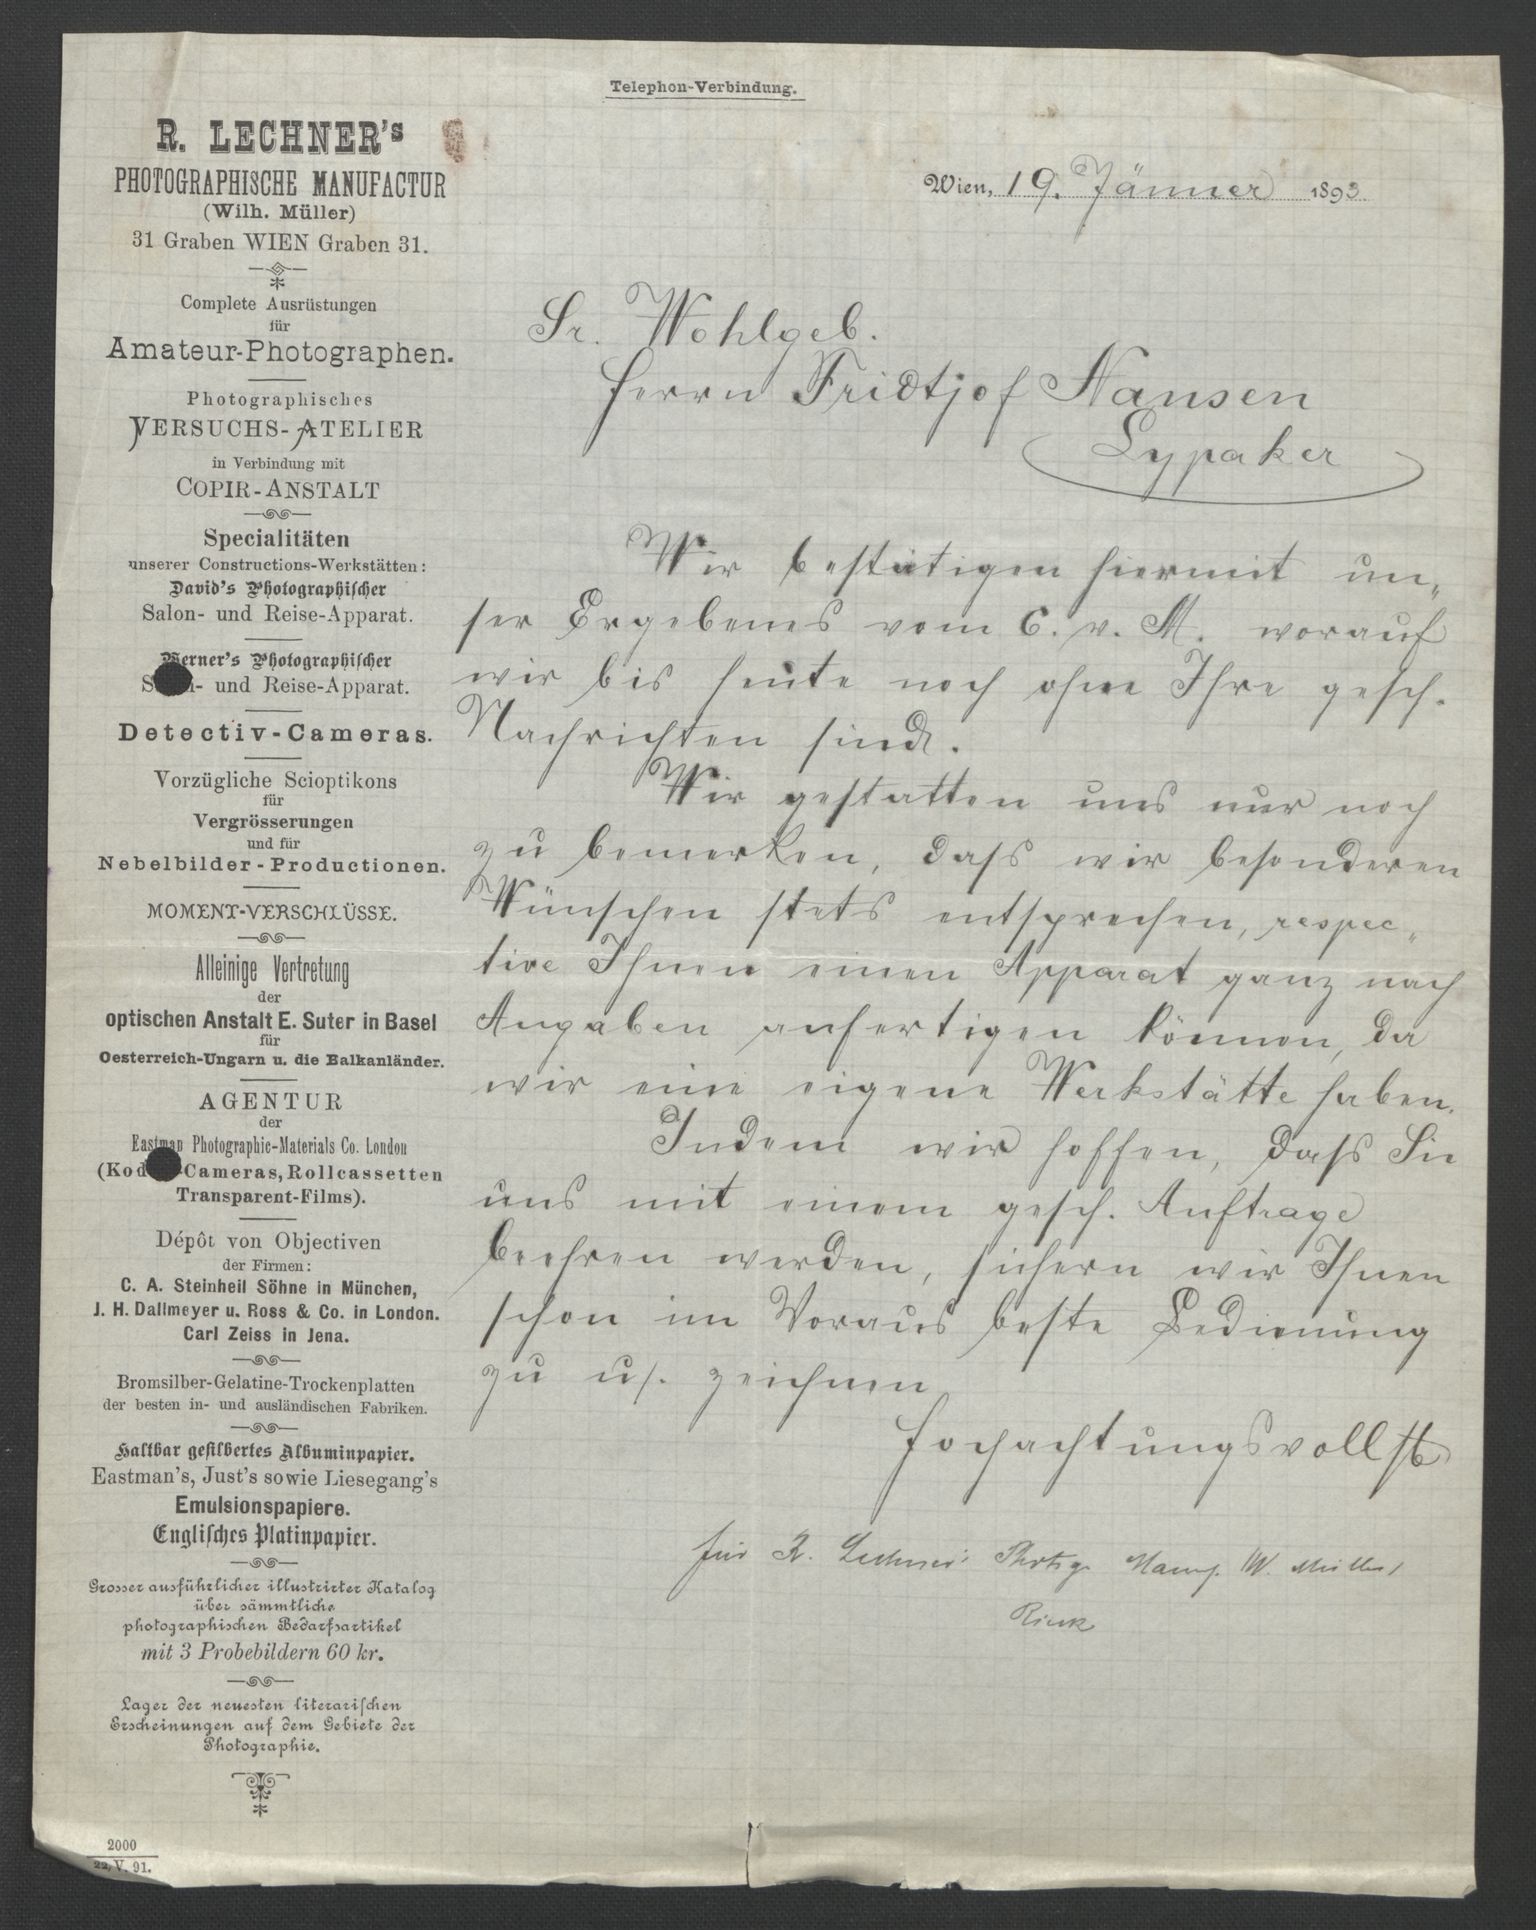 Telephon-Verbindung.
R. LECHNER's
PHOTOGRAPHISCHE MANUFACTUR
(Wilh. Müller)
31 Graben WIEN Graben 31.
Complete Ausrüstungen
für
Amateur-Photographen.
Photographisches
VERSUCHS-ATELIER
in Verbindung mit
COPIR-ANSTALT
Specialitäten
unserer Constructions-Werkstätten:
David's Photographischer
Salon- und Reise-Apparat.
Werner's Photographischer
- und Reise-Apparat.
Detectiv-Cameras.
Vorzügliche Scioptikons
für
Vergrösserungen
und für
Nebelbilder-Productionen.
MOMENT-VERSCHLÜSSE.
Alleinige Vertretung
der
optischen Anstalt E. Suter in Basel
für
Oesterreich-Ungarn u. die Balkanländer.
AGENTUR
der
Eastman Photographic-Materials Co. London
(Kod -Cameras, Rollcassetten
Transparent-Films).
Dépôt von Objectiven
der Firmen:
C. A. Steinheil Söhne in München,
J. H. Dallmeyer u. Ross & Co. in London.
Carl Zeiss in Jena.
Bromsilber-Gelatine-Trockenplatten
der besten in- und ausländischen Fabriken.
Haltbar gesilbertes Albuminpapier.
Eastman's, Just's sowie Liesegang's
Emulsionspapiere.
Englisches Platinpapier.
Grosser ausführlicher illustrirter Katalog
über sämmtliche
photographischen Bedarfsartikel
mit 3 Probebildern 60 kr.
Lager der neuesten literarischen
Erscheinungen auf dem Gebiete der
Photographie.
2000
22. V. 91.
Wien, 19. Jänner 1893
Sr. Wohlgeb.
Herrn Fridtjof Nansen
Lypaker
Wir bestätigen hiermit un„
ser Ergebenes vom 6. v. M. worauf
wir bis heute noch ohne Ihre gesch.
Nachrichten sind.
Wir gestatten uns nur noch
zu bemerken, dass wir besonderen
Wünschen stets entsprechen, respec„
tive Ihnen einen Apparat ganz nach
Angaben anfertigen können, da
wir eine eigene Werkstätte haben.
Indem wir hoffen, dass Sie
uns mit einem gesch. Auftrage
beehren werden, sichern wir Ihnen
schon im Voraus beste Bedienung
zu u/. zeichnen
Hochachtungsvollst
für R. Lechner's Photogr. Manuf. (W. Müller)